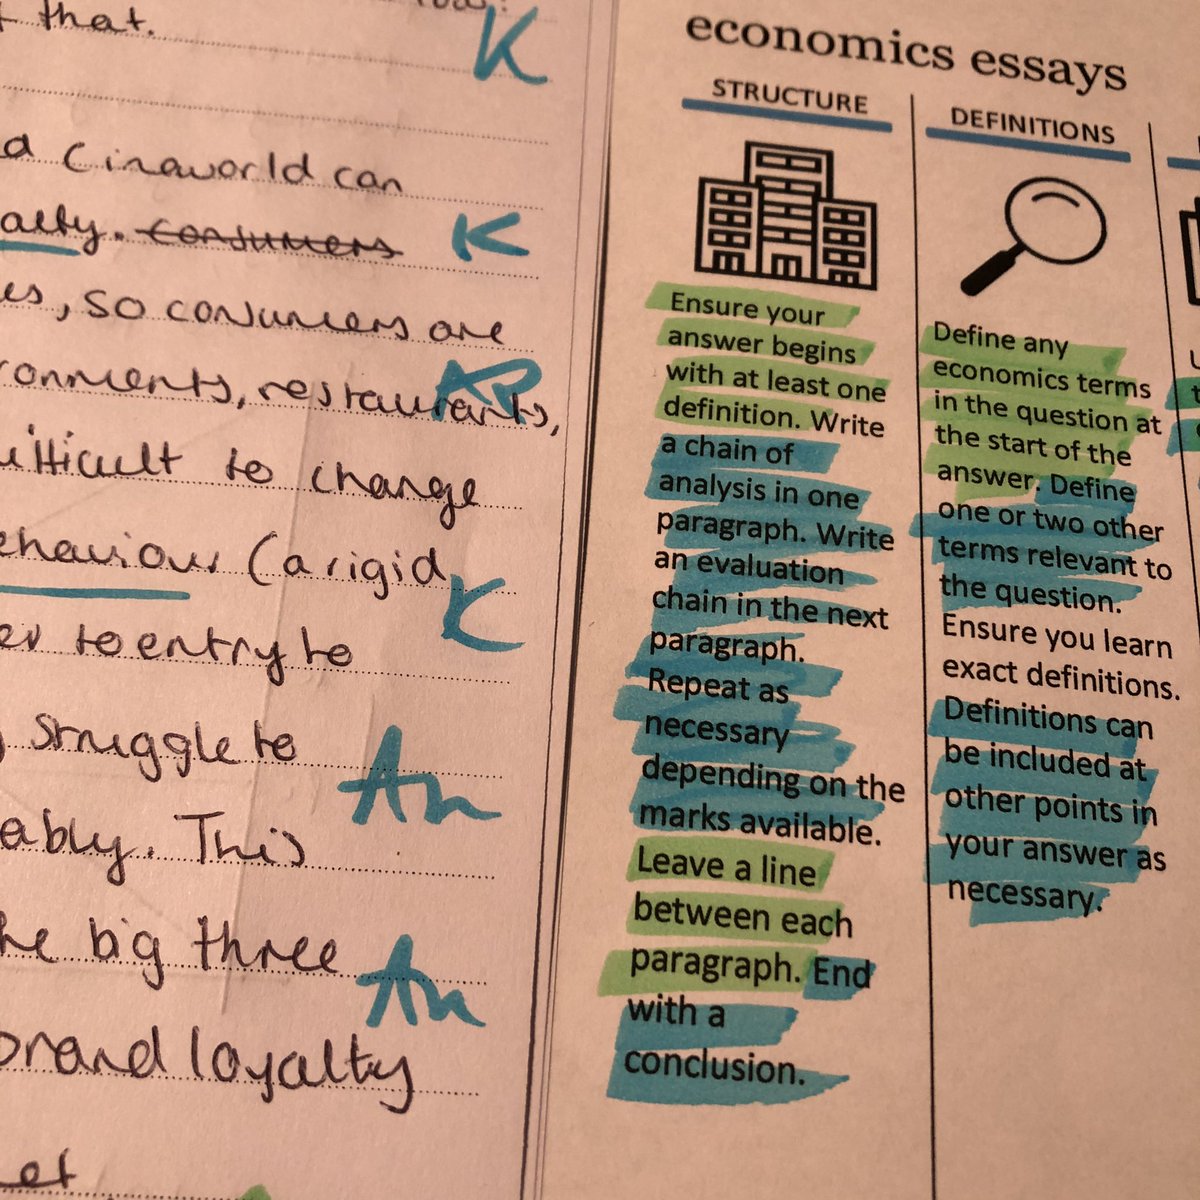 that.
K
a Cinaworld can
alty. Consumers
K
es, so consumers are
ronments, restaurants,
AP
difficult to change
ehaviour (a rigid
K
er to entry to
struggle to
An
ably. This
he big three
An
brand loyalty
et
economics essays
STRUCTURE
Ensure your
answer begins
with at least one
definition. Write
a chain of
analysis in one
paragraph. Write
an evaluation
chain in the next
paragraph.
Repeat as
necessary
depending on the
marks available.
Leave a line
between each
paragraph. End
with a
conclusion.
DEFINITIONS
Define any
economics terms
in the question at
the start of the
answer. Define
one or two other
terms relevant to
the question.
Ensure you learn
exact definitions.
Definitions can
be included at
other points in
your answer as
necessary.